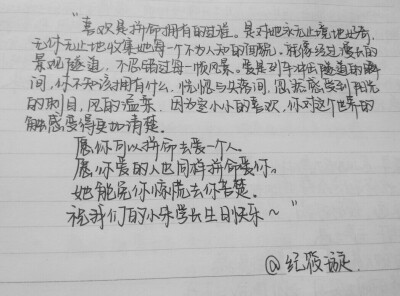 "喜欢是拼命拥有的过程。是对她永无止境地好奇,
无休无止地收集她每一个不为人知的侧貌。就像经过漫长的
景观隧道,不忍错过每一帧风景。爱是列车冲出隧道的瞬
间,你不知该拥有什么,恍惚与失落间,忽然感受到阳光
的刺目,风的温柔。因为宏小小的喜欢,你对这个世界的
触感变得更加清楚。
愿你可以拼命去爱一个人。
愿你爱的人也同样拼命爱你。
她能免你惊慌去你苦楚。
祝我们的小朱学长生日快乐~"
@纪筱